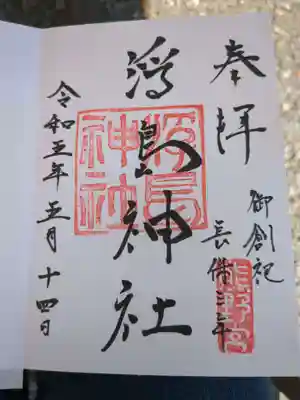 奉拝
御創祀
長保三年
熊野宮
浮島神社
浮島神社
令和五年五月十四日